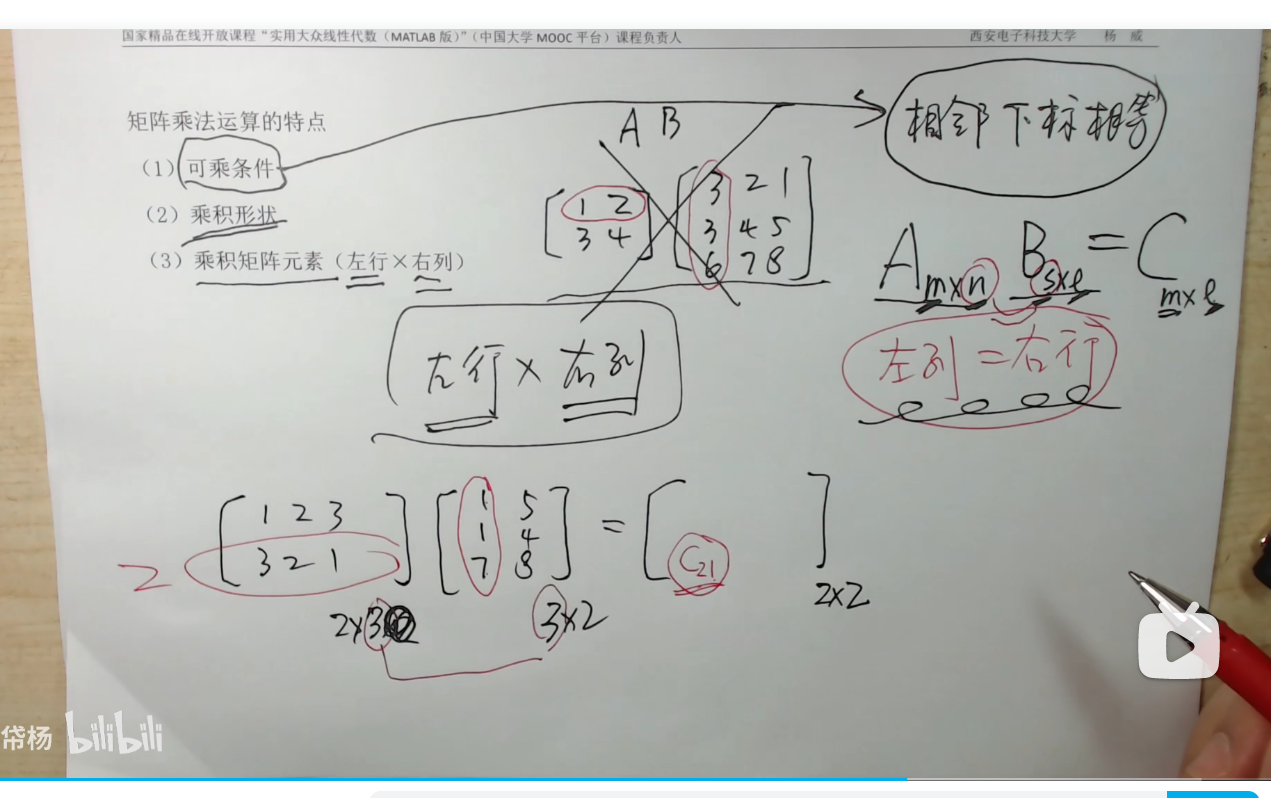 国家精品在线开放课程“实用大众线性代数（MATLAB 版）”（中国大学 MOOC 平台）课程负责人 西安电子科技大学 杨 威
矩阵乘法运算的特点
（1）可乘条件
（2）乘积形状
（3）乘积矩阵元素（左行×右列）
A B
相邻下标相等
[1 2] [3 2 1]
[3 4] [3 4 5]
[6 7 8]
A m×n B s×l = C m×l
左列=右行
左行×右列
[1 2 3] [1 5] = [ ]
[3 2 1] [1 4] C21
[7 8]
2
2×3 3×2 2×2
帘杨 bilibili